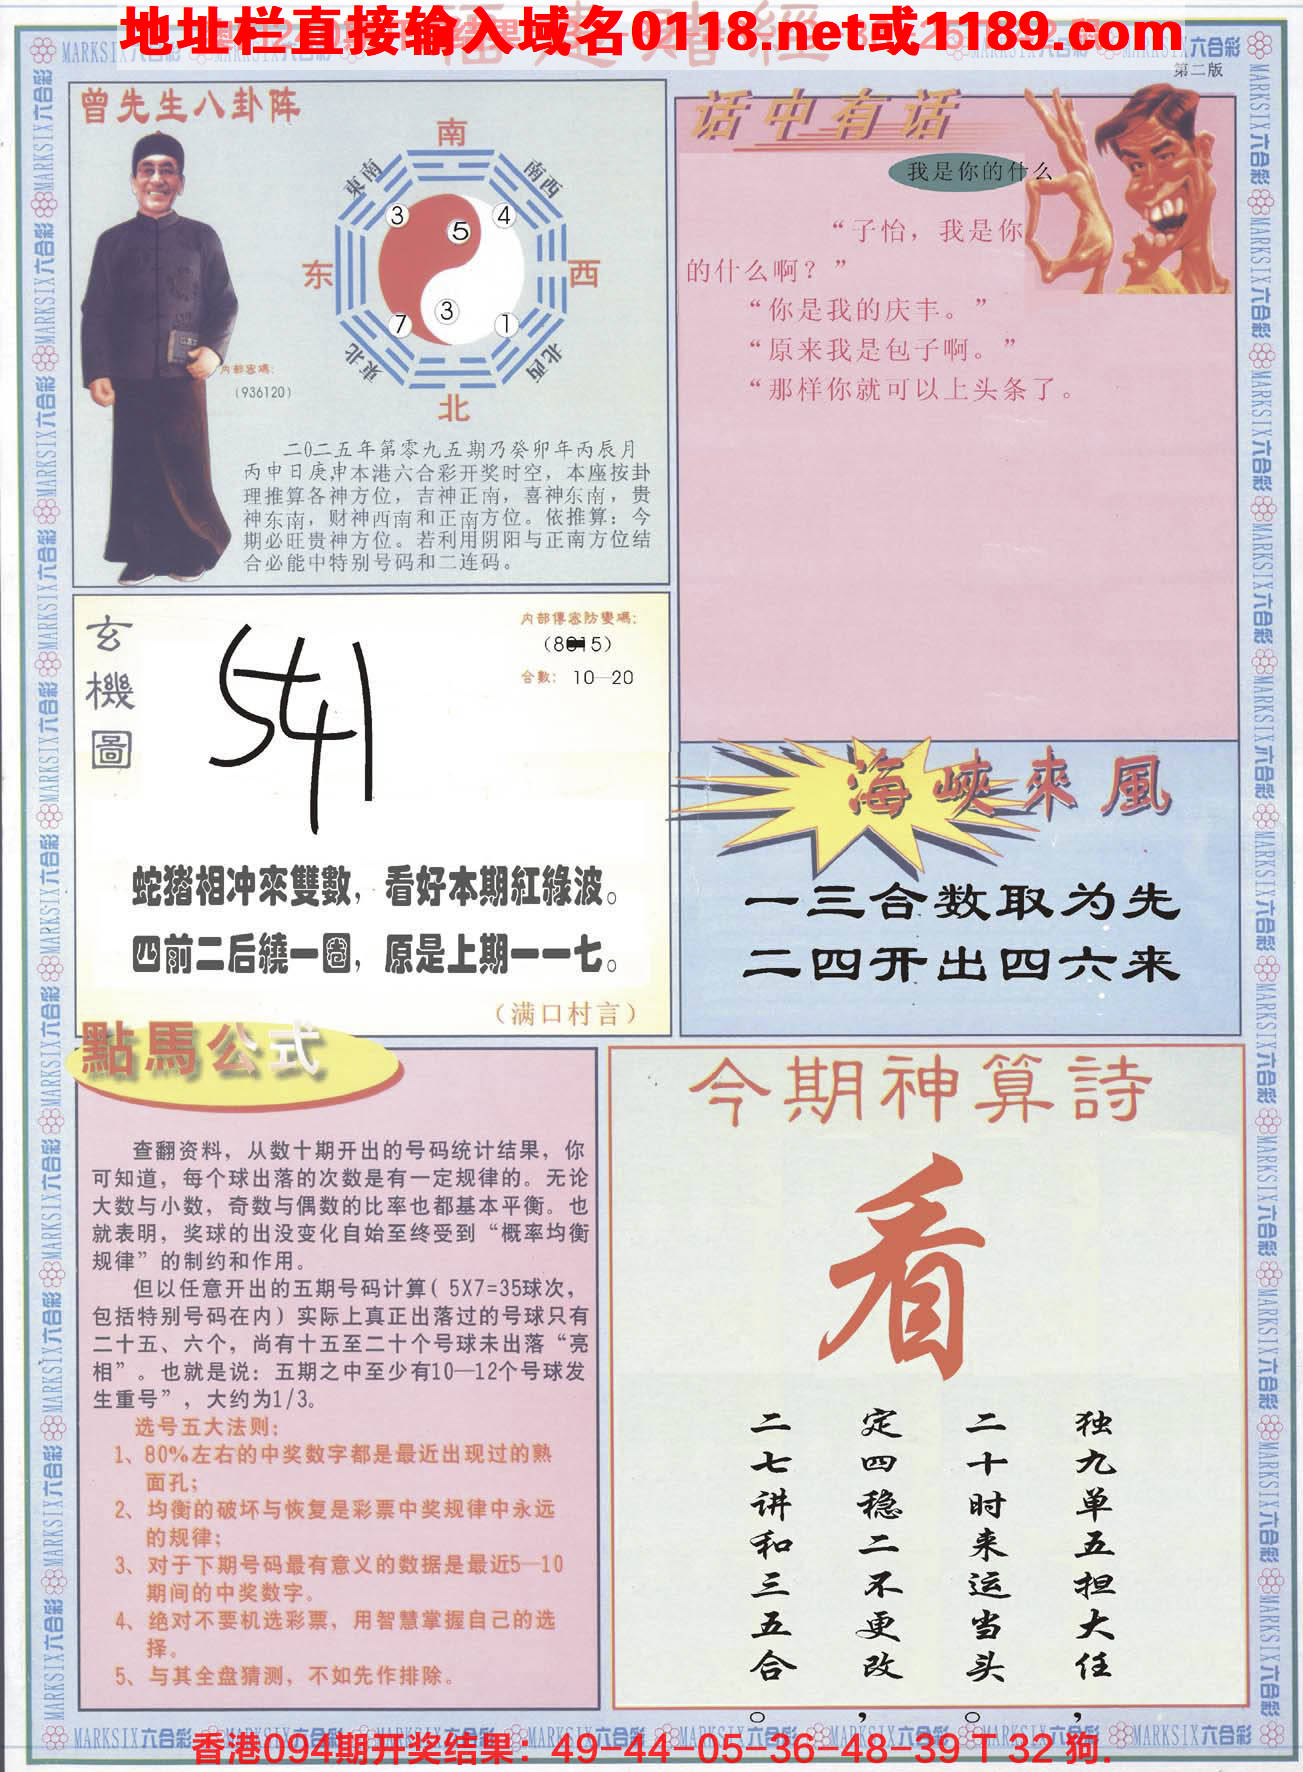 地址栏直接输入域名0118.net或1189.com
第二版
曾先生八卦阵
南
東南
南西
3
5
4
东
西
7
3
1
東北
北西
北
内部密碼：
（936120）
二〇二五年第零九五期乃癸卯年丙辰月
丙申日庚申本港六合彩开奖时空，本座按卦
理推算各神方位，吉神正南，喜神东南，贵
神东南，财神西南和正南方位。依推算：今
期必旺贵神方位。若利用阴阳与正南方位结
合必能中特别号码和二连码。
话中有话
我是你的什么
“子怡，我是你
的什么啊？”
“你是我的庆丰。”
“原来我是包子啊。”
“那样你就可以上头条了。
玄機圖
内部傳密防變碼：
合數：10—20
541
蛇猪相冲來雙數，看好本期紅綠波。
四前二后繞一圈，原是上期一一七。
（满口村言）
海峽來風
一三合数取为先
二四开出四六来
點馬公式
查翻资料，从数十期开出的号码统计结果，你
可知道，每个球出落的次数是有一定规律的。无论
大数与小数，奇数与偶数的比率也都基本平衡。也
就表明，奖球的出没变化自始至终受到“概率均衡
规律”的制约和作用。
但以任意开出的五期号码计算（5X7=35球次，
包括特别号码在内）实际上真正出落过的号球只有
二十五、六个，尚有十五至二十个号球未出落“亮
相”。也就是说：五期之中至少有10—12个号球发
生重号”，大约为1/3。
选号五大法则；
1、80%左右的中奖数字都是最近出现过的熟
面孔；
2、均衡的破坏与恢复是彩票中奖规律中永远
的规律；
3、对于下期号码最有意义的数据是最近5—10
期间的中奖数字。
4、绝对不要机选彩票，用智慧掌握自己的选
择。
5、与其全盘猜测，不如先作排除。
今期神算詩
看
独九单五担大任，
二十时来运当头。
定四稳二不更改，
二七讲和三五合。
MARKSIX六合彩
香港094期开奖结果：49-44-05-36-48-39 T 32 狗.